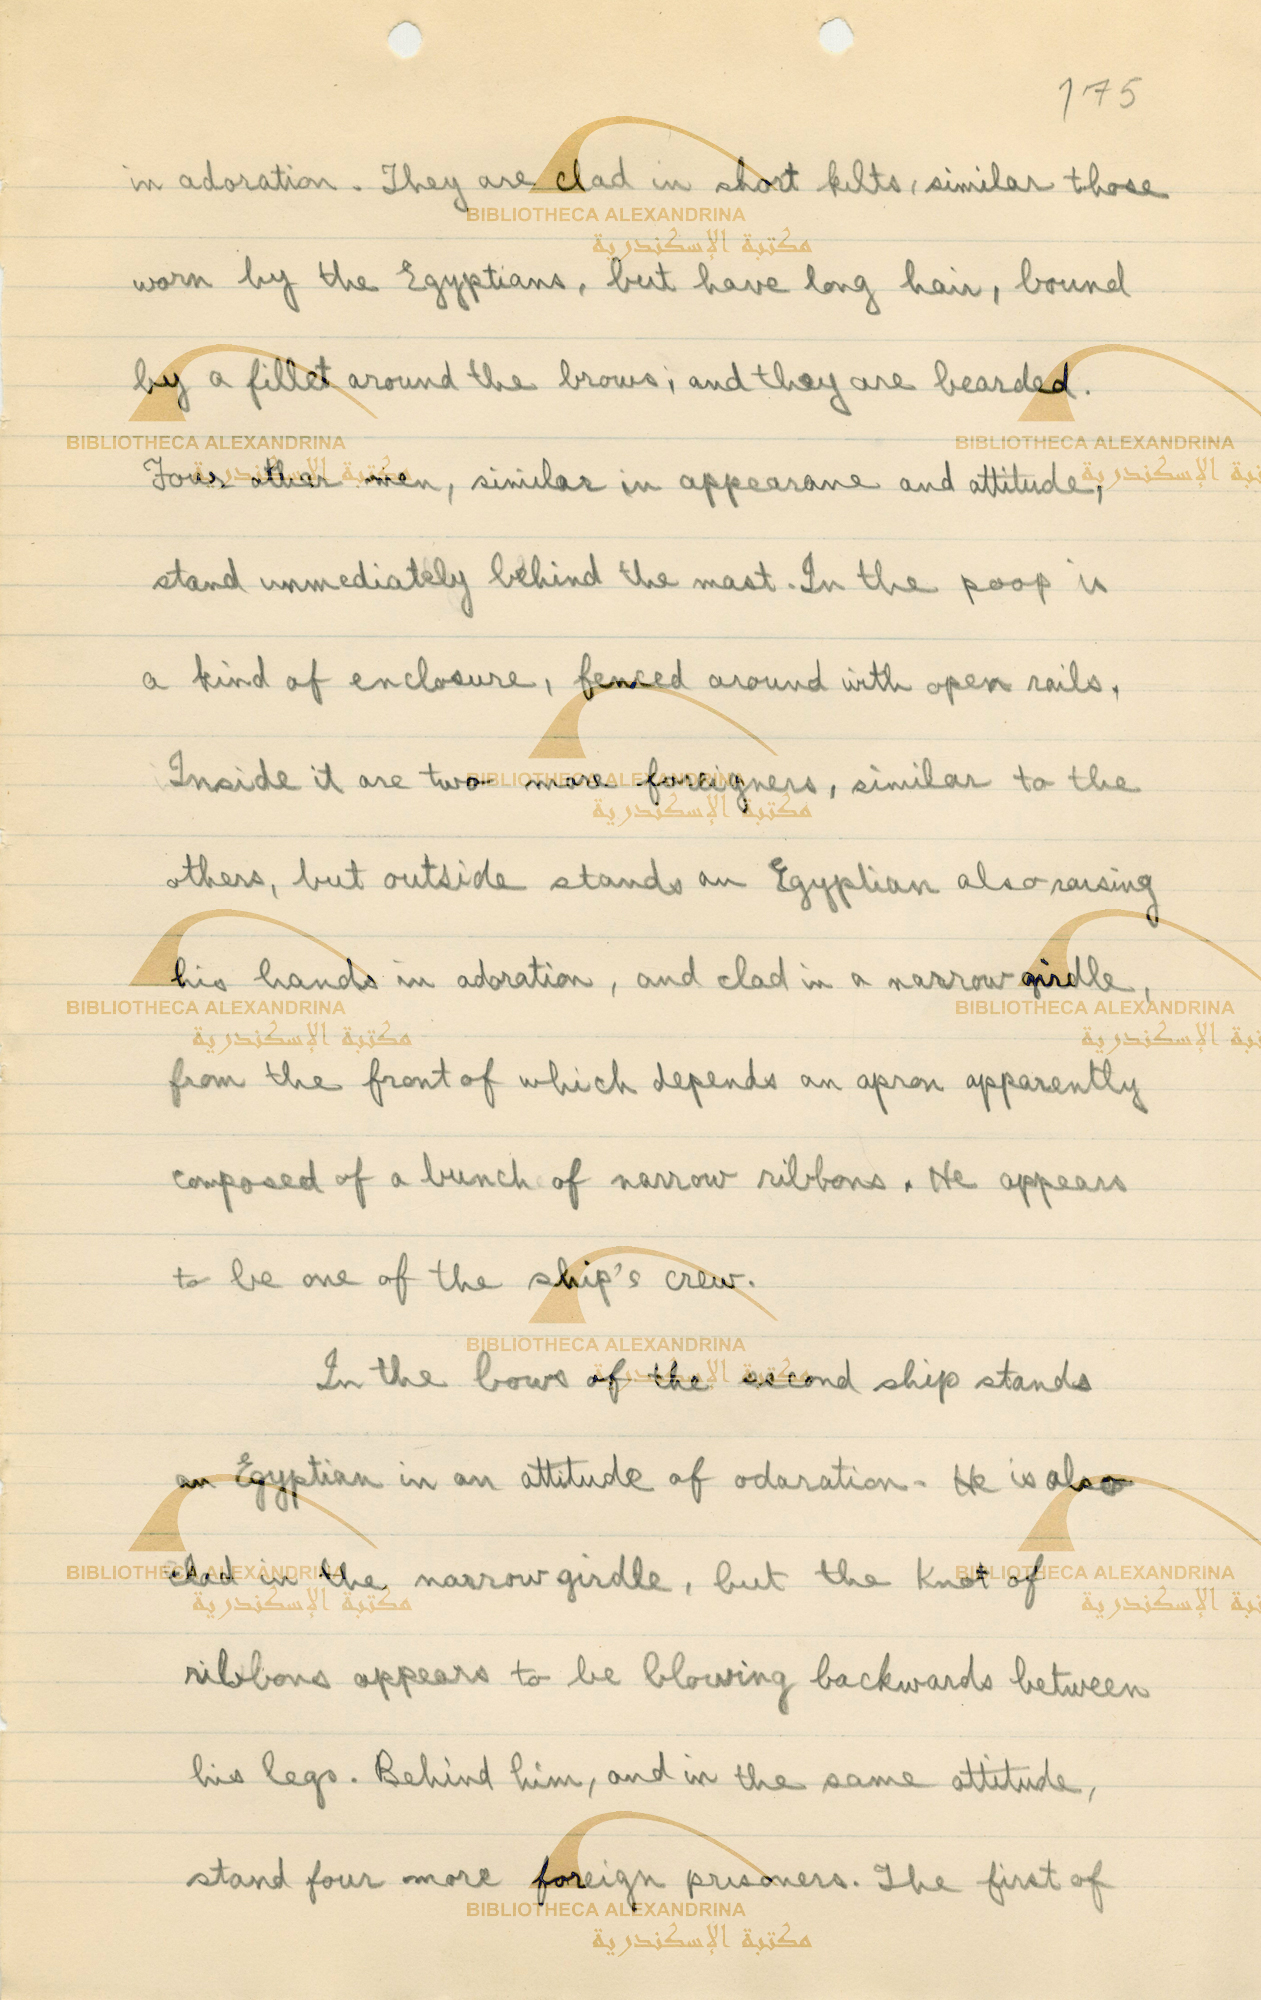 175
in adoration. They are clad in short kilts, similar those
worn by the Egyptians, but have long hair, bound
by a fillet around the brows; and they are bearded.
Four other men, similar in appearane and attitude,
stand immediately behind the mast. In the poop is
a kind of enclosure, fenced around with open rails.
Inside it are two more foreigners, similar to the
others, but outside stands an Egyptian also raising
his hands in adoration, and clad in a narrow girdle,
from the front of which depends an apron apparently
composed of a bunch of narrow ribbons. He appears
to be one of the ship's crew.
In the bows of the second ship stands
an Egyptian in an attitude of odaration. He is also
clad in the narrow girdle, but the knot of
ribbons appears to be blowing backwards between
his legs. Behind him, and in the same attitude,
stand four more foreign prisoners. The first of
BIBLIOTHECA ALEXANDRINA
مكتبة الإسكندرية